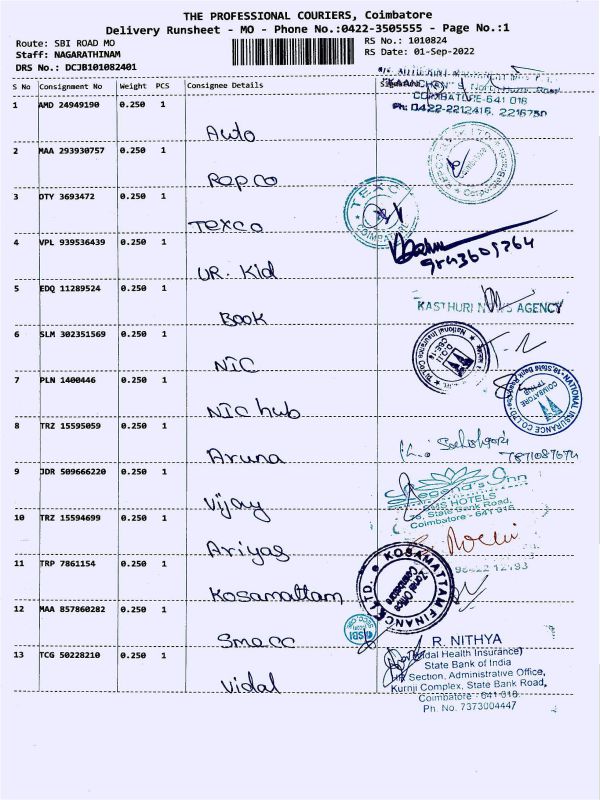 THE PROFESSIONAL COURIERS, Coimbatore
Delivery Runsheet - MO - Phone No.:0422-3505555 - Page No.:1
Route: SBI ROAD MO
RS No.: 1010824
Staff: NAGARATHINAM
RS Date: 01-Sep-2022
DRS No.: DCJB101082401
S No Consignment No Weight PCS Consignee Details
COIMBATORE-641 018
Ph: 0422-2212416, 2216750
1 AMD 24949190 0.250 1
Auto
2 MAA 293930757 0.250 1
Repco
Coimbatore
Corporate Branch
3 DTY 3693472 0.250 1
Texco
TEXCO
COIMBATORE
4 VPL 939536439 0.250 1
UR. Kid
9843609264
5 EDQ 11289524 0.250 1
Book
KASTHURI NEWS AGENCY
6 SLM 302351569 0.250 1
NIC
National Insurance
7 PLN 1400446 0.250 1
NIC hub
NATIONAL INSURANCE CO LTD
COIMBATORE
8 TRZ 15595059 0.250 1
Aruna
9 JDR 509666220 0.250 1
Vijay
Legend's Inn
SMS HOTELS
State Bank Road,
Coimbatore - 641 018
10 TRZ 15594699 0.250 1
Ariyas
11 TRP 7861154 0.250 1
Kosamattam
KOSAMATTAM FINANCE LTD.
Zonal Office
Coimbatore
12 MAA 857860282 0.250 1
Smacc
SBI
13 TCG 50228210 0.250 1
Vidal
R. NITHYA
(Vidal Health Insurance)
State Bank of India
HR Section, Administrative Office,
Kurnji Complex, State Bank Road,
Coimbatore - 641 018.
Ph. No. 7373004447